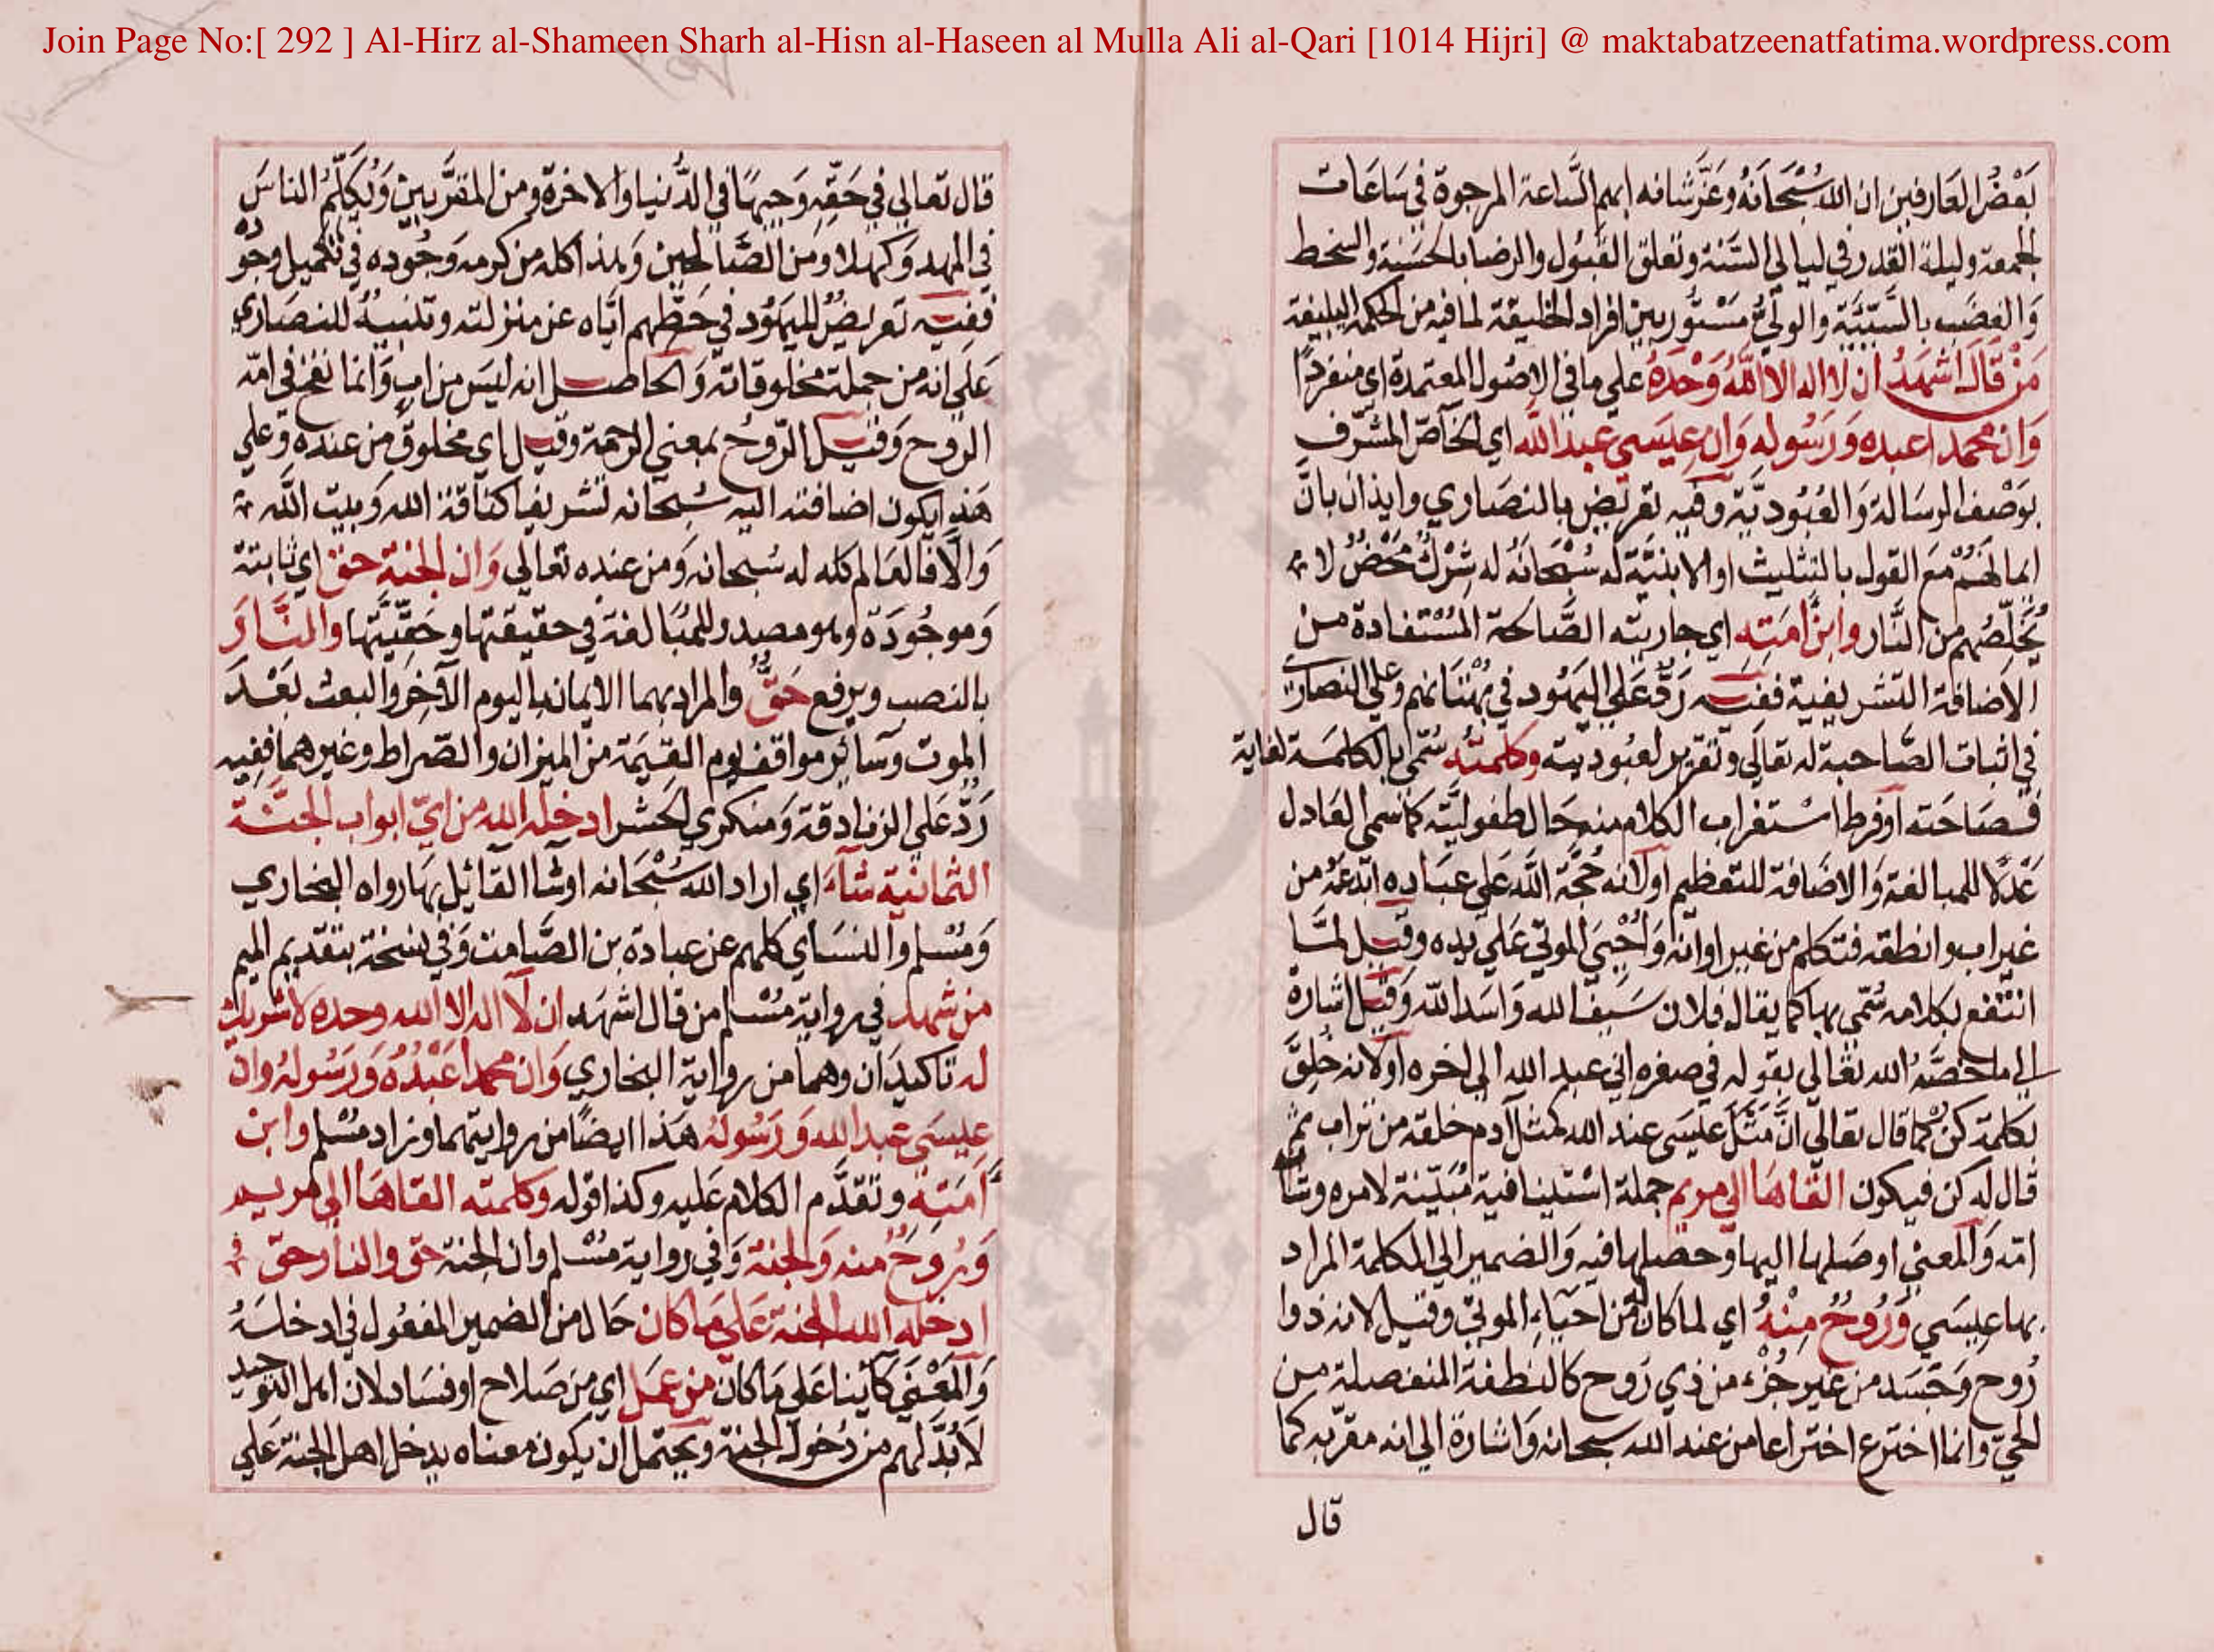 Join Page No:[ 292 ] Al-Hirz al-Shameen Sharh al-Hisn al-Haseen al Mulla Ali al-Qari [1014 Hijri] @ maktabatzeenatfatima.wordpress.com
بَعْضُ العَارفين ان الله سُبْحَانَهُ وَعَزَّ شانه ابهم السَّاعة المرجوة في سَاعَات
الجمعة وليلة القدر في ليالي السَّنة وتعلق القبُول والرضا بالحسَنة والسخط
وَالغضَب بالسَّيِّئَة والوليُّ مَسْتُور بين افراد الخليقة لما فيه من الحكمة البليغة
مَنْ قَالَ اشهَدُ ان لا اله الا اللَّهُ وَحْدَهُ علي ما في الاصُول المعتمدة اي منفردًا
وَان محمدا عبده وَرَسُوله وَان عِيسَى عبد الله اي الخاصّ المشرّف
بوَصْف الرسَالة وَالعُبُوديَّة وفيه تعريض بالنصَاري وايذان بانَّ
ايمَانهُمْ مَعَ القول بالتثليث او الابنيَّة له سُبْحَانَهُ له شِرْكٌ مَحْضٌ لا
يُخَلِّصُهم من النَّار وابنُ امَتِه اي جاريته الصَّالحة المُسْتفادة من
الاضافة التشريفية ففيه رَدٌّ عَلَى اليَهُود في بُهْتَانهم وعلي النصَارى
في اثبات الصَّاحبة له تعَالَى وتقرير لعبُوديته وكلمتُهُ سُمِّيَ بالكلمَة لغاية
فصَاحَته او فرط اسْتغراب الكلام منه حَال طفوليَّته كمَا سمي العَادل
عَدلًا للمبالغة وَالاضَافة للتعظيم او لانه حُجَّة اللَّه عَلَى عبَاده ابْدعَهُ من
غير اب وانطقه فتكلم من غير اوانه وَاُحْيِيَ الموتي عَلَي يده وقيل لمَّا
انتفع بكلامه سُمّيَ بها كما يقال فلان سَيف الله وَاسَد اللّه وَقيل اشارة
الي ما خصَّهُ الله تعَالى بقوله في صغره اني عبد الله الى اخره او لانه خُلِقَ
بكلمة كُنْ كما قال تعَالَى انَّ مَثَلَ عيسَى عند الله كمثل آدم خلقه من تراب ثم
قال له كن فيكون القَاهَا الى مريم جملة اسْتينافية مُبيّنة لامره وشان
امّه وَالمعني اوصَلها اليها وحصلها فيه وَالضمير الي الكلمة المراد
بها عيسَي وَرُوحٌ مِنْهُ اي لما كان له من احيَاء الموتى وقيل لانه ذو
رُوح وَجَسَد من غير جُزْء من ذي رُوح كالنطفة المنفصلة من
الحيّ وانما اخترع اختراعا من عند الله سبحانه وَاشارة الي انه مقربه كما
قال
قال تعالى في حَقّهِ وَجيهًا في الدُّنيا والاخرة ومن المقرَّبينْ وَيُكلّم الناسَ
في المهد وَكهلا ومَن الصَّالحين وَهذا كله من كرمه وَجُوده في تكميل وجُوده
ففيه تعريضٌ لليَهُود في حَطِّهم ايَّاه عن منزلته وتنبيهٌ للنصَاري
عَلَى انه من جملة مخلوقاته وَالحاصل انه ليسَ من ابٍ وَانما نفخ في امّه
الروح وَقيل الرّوحُ بمعني الرحمة وقيل اي مخلوقٍ من عنده وَعلي
هَذا يكون اضافته اليه سُبحانه تشريفا كناقة الله وَبيت اللَّه
وَالَّا فالعَالم كله له سُبحانه وَمن عنده تعَالي وَان الجنة حق اي ثابتة
وَموجُودَة وهو مصدر للمُبَالغة في حقيقتها وحَقّيَّتها والنَّارَ
بالنصب ويرفع حَقٌّ والمراد بهما الايمان باليوم الآخِر وَالبعث بَعْدَ
الموت وسَائِر مواقف يوم القيٰمَة من الميزان والصّراط وغيرهما ففيه
رَدٌّ عَلَى الزنادقة وَمنكري الحَشر ادخله الله من ايّ ابواب الجنَّة
الثمانية شآءَ اي اراد الله سُبْحَانه او شا القائل بهَا رواه البخاري
وَمُسْلم والنسَاي كلهم عن عبادة بن الصَّامت وَفي نسخة بتقديم الميم
من شهد في رواية مُسْلم من قال اشهَد ان لَا اله الا الله وحده لا شريك
له تاكيدَان وهما من رواية البخاري وَان محمدا عَبْدُهُ وَرَسُولهُ وان
عِيسَى عبد الله وَرَسُولهُ هَذا ايضًا من روايتهما وزاد مسْلم وابنْ
اَمَتِهِ وتقدَّم الكلام عَليه وكذا قوله وكلمته القاهَا الى مريم
وَرُوحٌ منه وَالجنة وَفي رواية مُسْلم وان الجنة حق والنار حق
ادخله الله الجنة عَلَى مَا كانَ حَال من الضمير المفعُول في ادخلهُ
وَالمَعْني كائِنا عَلى مَا كان من عمَل اي من صَلاح او فسَاد لان اهل التوحيد
لَابُدَّ لهم من دُخول الجنة ويحتمل ان يكون معناه يدخل اهل الجنة عَلي